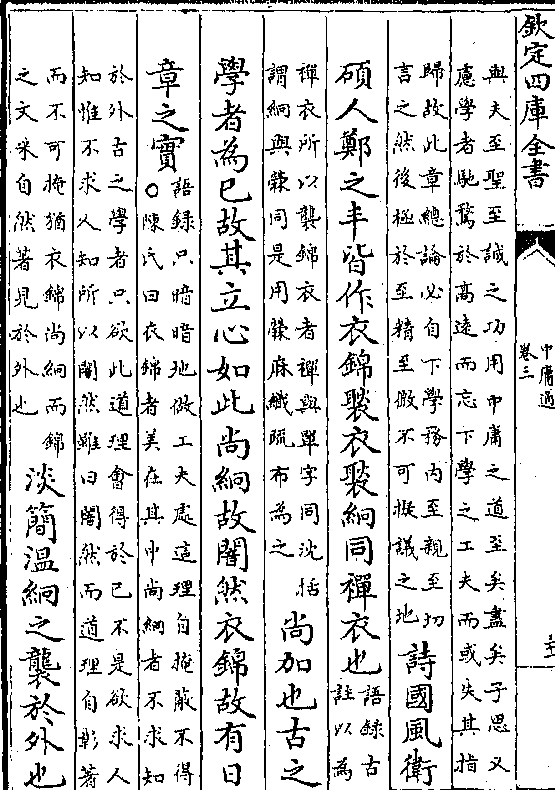 欽定四庫全書
中庸通
卷三
與夫至聖至誠之功用中庸之道至矣盡矣子思又
慮學者馳騖於高遠而忘下學之工夫而或失其指
歸故此章總論必自下學務內至親至切
言之然後極於至精至微不可擬議之地
詩國風衛
碩人鄭之丰皆作衣錦褧衣褧絅同襌衣也
語録古
註以為
襌衣所以襲錦衣者襌與單字同沈括
謂絅與褧同是用𦾵麻織疏布為之
尚加也古之
學者為已故其立心如此尚絅故闇然衣錦故有日
章之實
語録只暗暗地做工夫處這理自掩蔽不得
○陳氏曰衣錦者美在其中尚絅者不求知
於外古之學者只欲此道理會得於已不是欲求人
知惟不求人知所以闇然雖曰闇然而道理自彰著
而不可掩猶衣錦尚絅而錦
之文采自然著見於外也
淡簡温絅之襲於外也